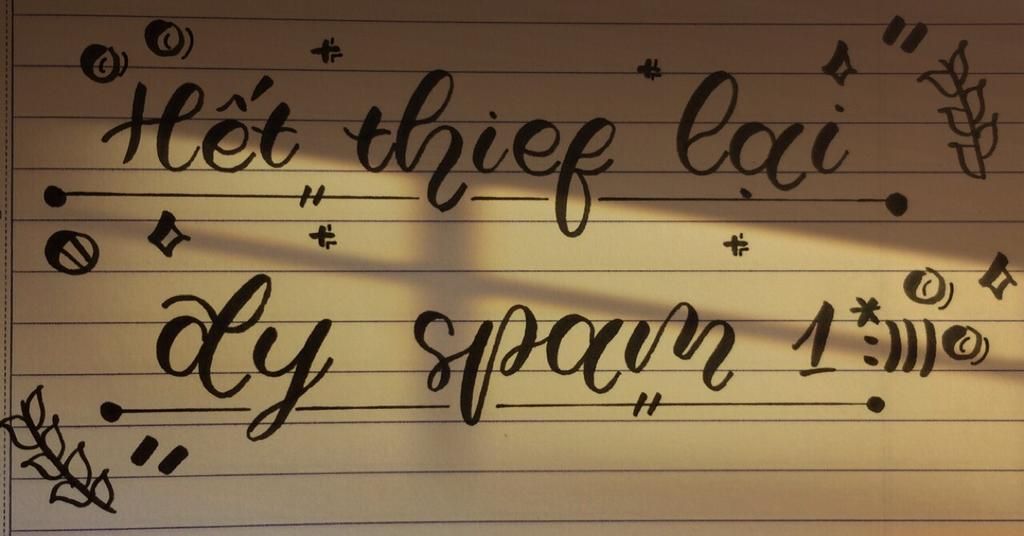 Hết thief lại
dy spam 1*:)))